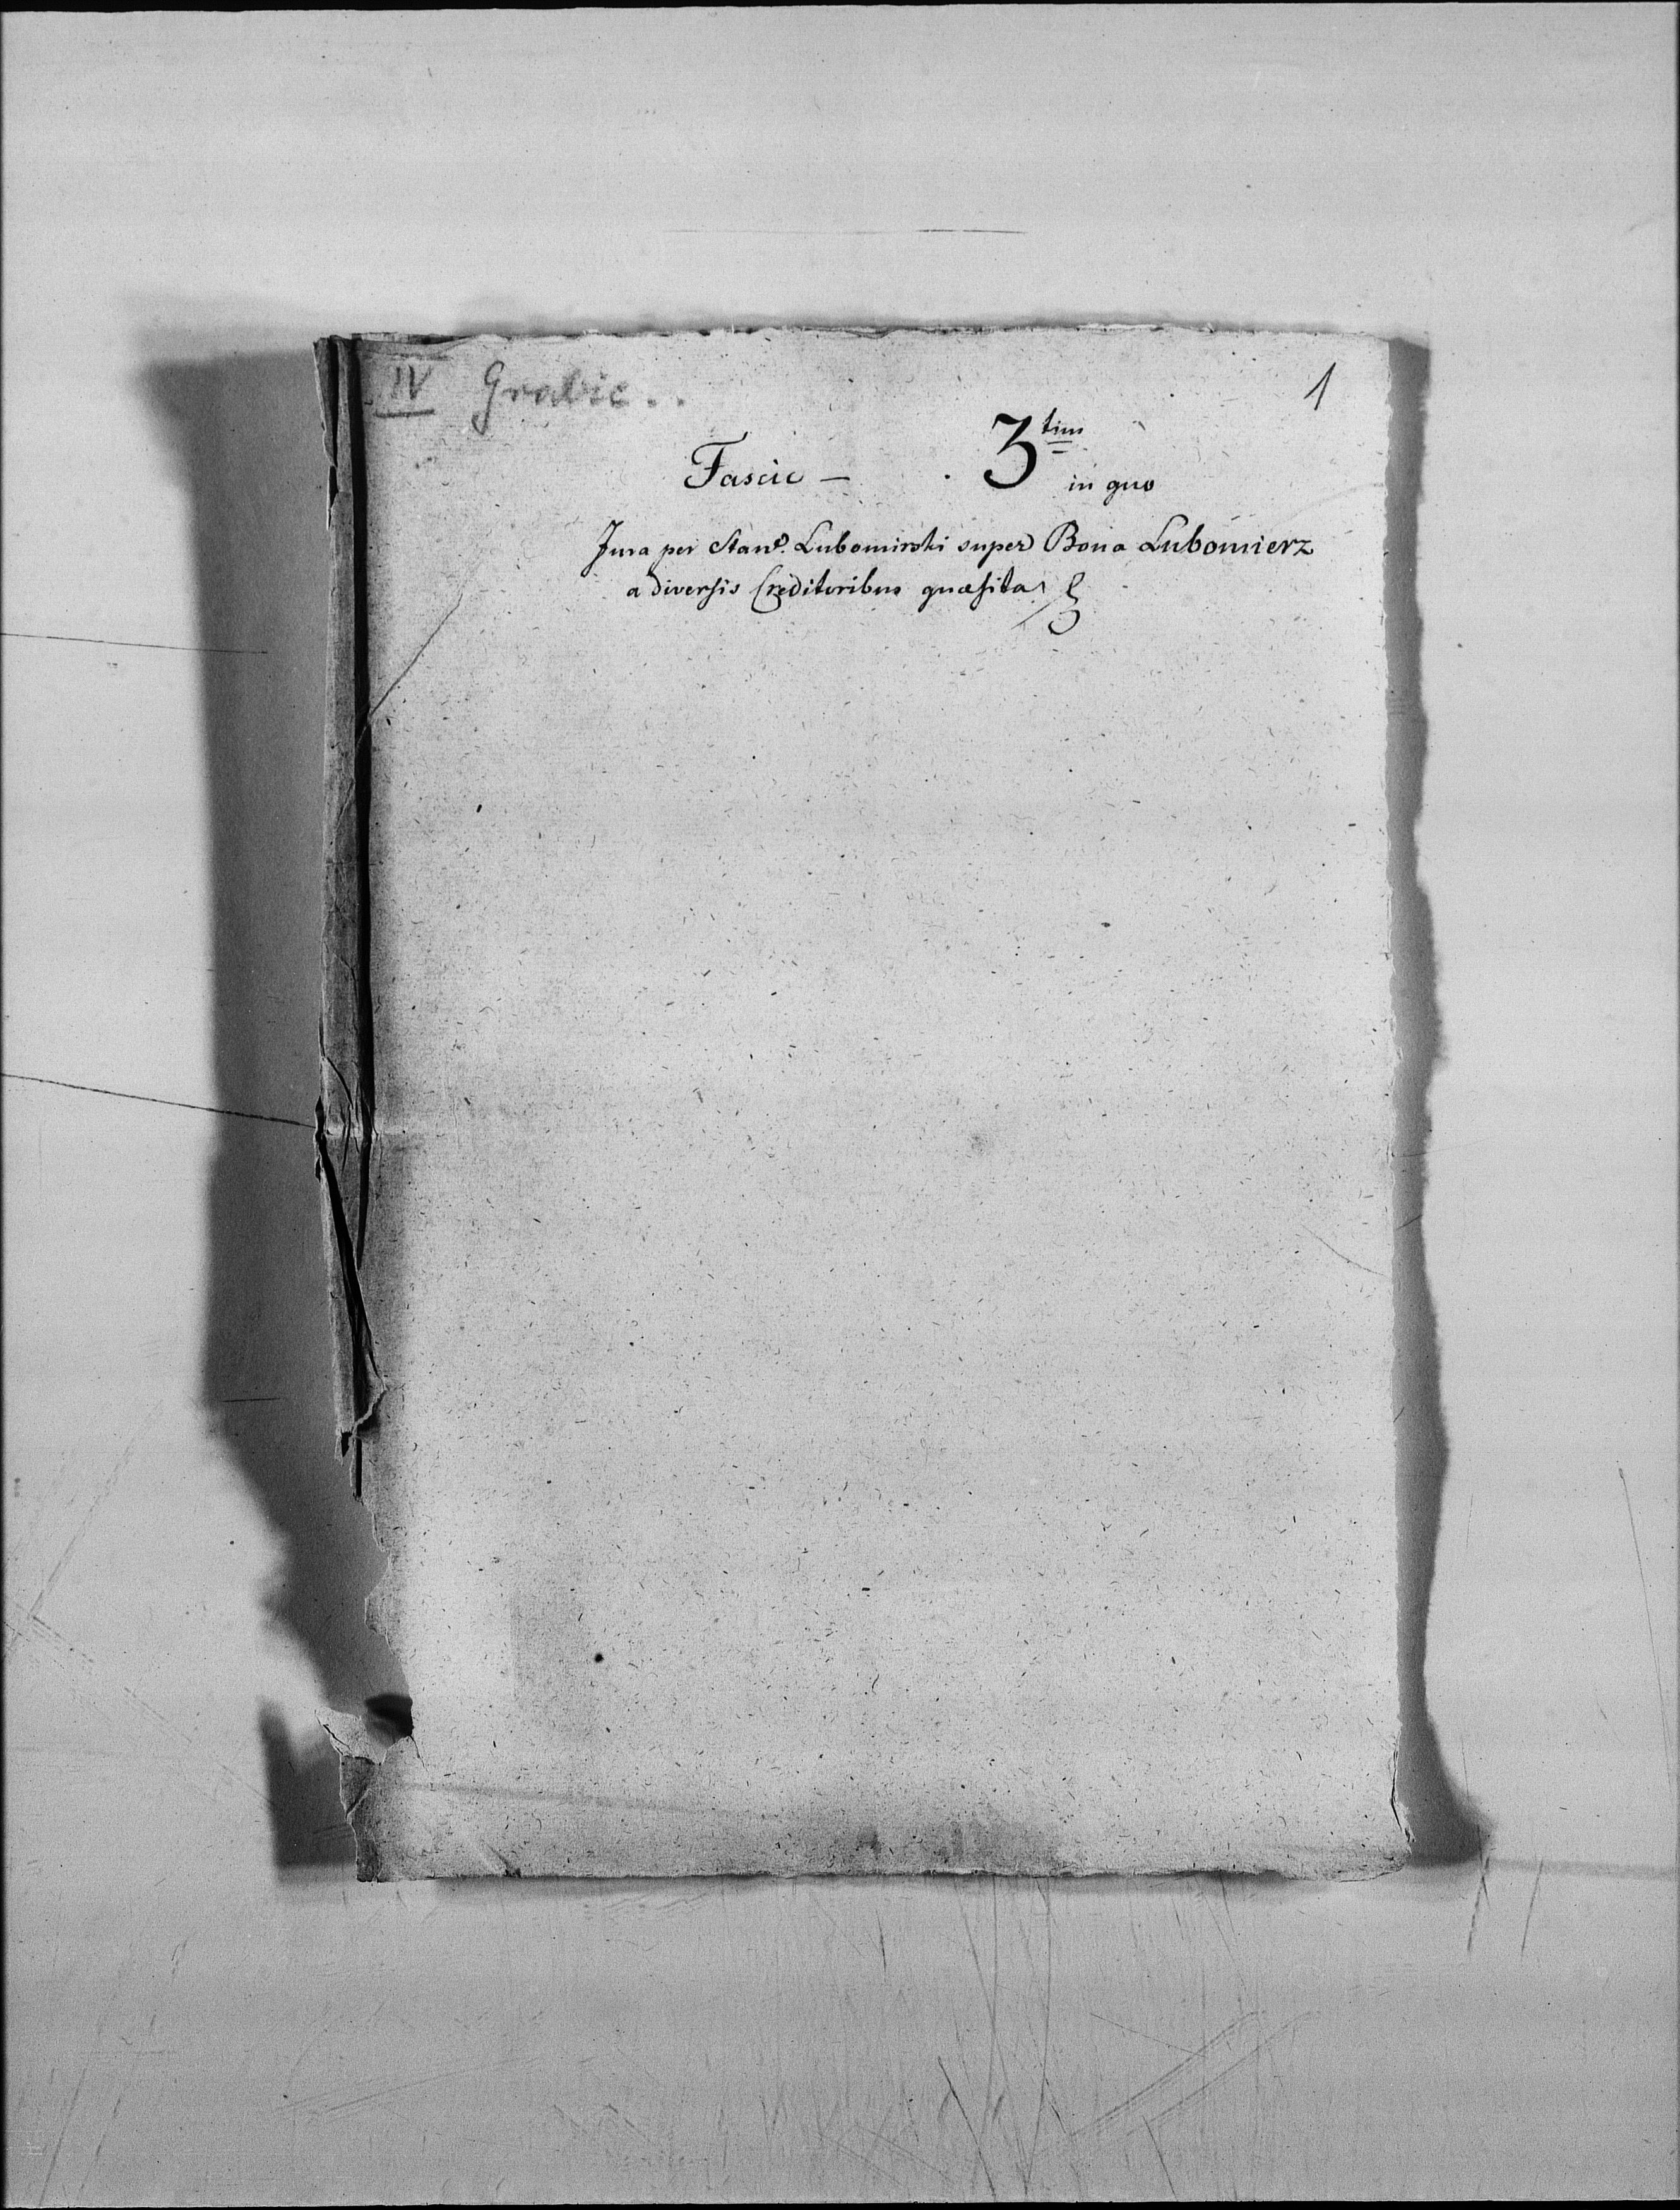 IV Grabie..
1
Fascic — 3tium
in quo
Jura per Stan. Lubomirski super Bona Lubomierz
a diversis Creditoribus quæsita